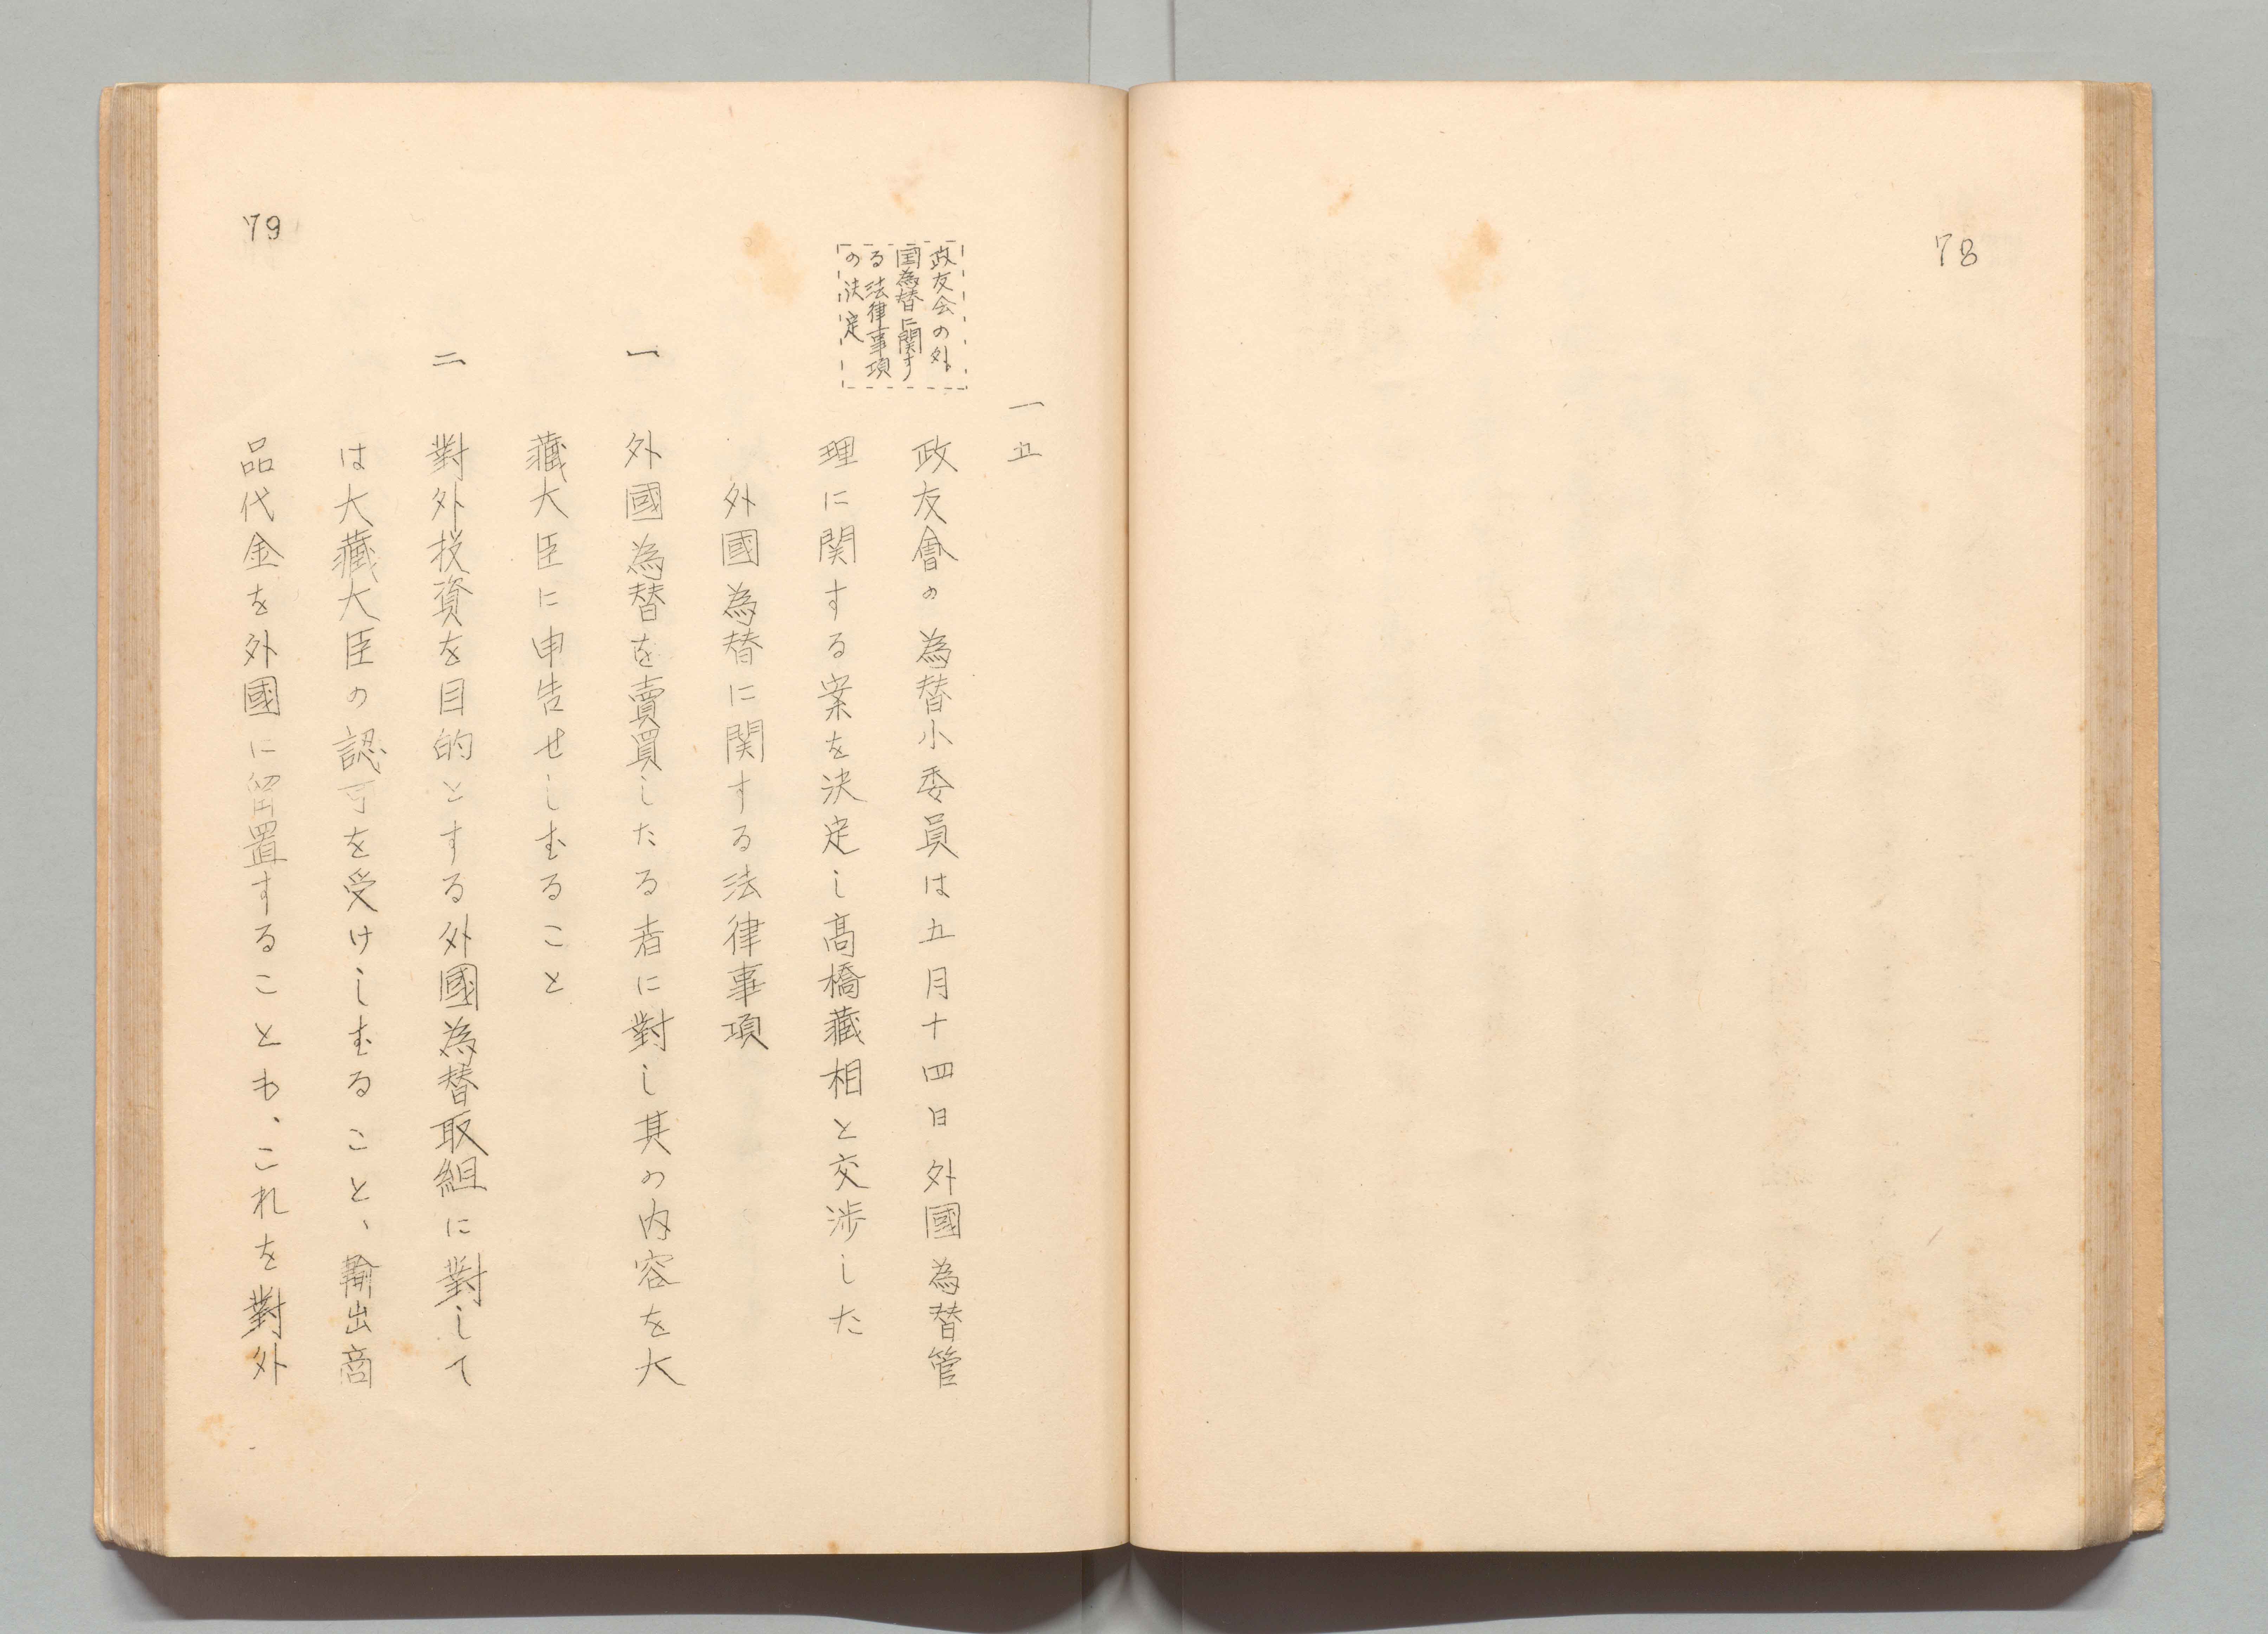 78
一五
政友会の外
国為替に関す
る法律事項
の決定
政友會の為替小委員は五月十四日外國為替管
理に関する案を決定し髙橋藏相と交渉した
外國為替に関する法律事項
一 外國為替を賣買したる者に對し其の内容を大
藏大臣に申告せしむること
二 對外投資を目的とする外國為替取組に對して
は大藏大臣の認可を受けしむること、輸出商
品代金を外國に留置することも、これを對外
79